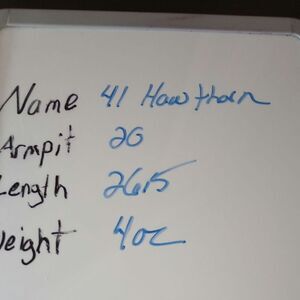 Name 41 Hawthorn
Armpit 20
Length 26.5
Weight 4oz